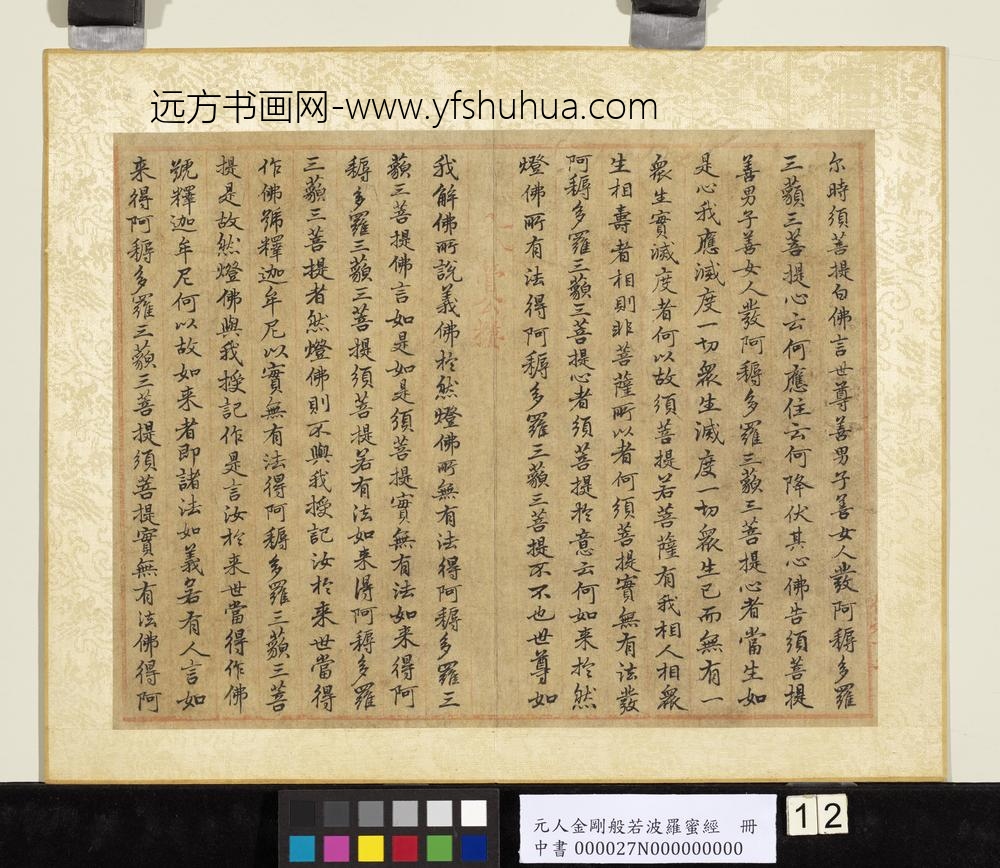 远方书画网-www.yfshuhua.com
尓時須菩提白佛言世尊善男子善女人發阿耨多羅
三藐三菩提心云何應住云何降伏其心佛告須菩提
善男子善女人發阿耨多羅三藐三菩提心者當生如
是心我應滅度一切衆生滅度一切衆生已而無有一
衆生實滅度者何以故須菩提若菩薩有我相人相衆
生相壽者相則非菩薩所以者何須菩提實無有法發
阿耨多羅三藐三菩提心者須菩提於意云何如来於然
燈佛所有法得阿耨多羅三藐三菩提不不也世尊如
我解佛所說義佛於然燈佛所無有法得阿耨多羅三
藐三菩提佛言如是如是須菩提實無有法如来得阿
耨多羅三藐三菩提須菩提若有法如来得阿耨多羅
三藐三菩提者然燈佛則不與我授記汝於来世當得
作佛號釋迦牟尼以實無有法得阿耨多羅三藐三菩
提是故然燈佛與我授記作是言汝於来世當得作佛
號釋迦牟尼何以故如来者即諸法如義若有人言如
来得阿耨多羅三藐三菩提須菩提實無有法佛得阿
元人金剛般若波羅蜜經 冊
中書 000027N000000000
12